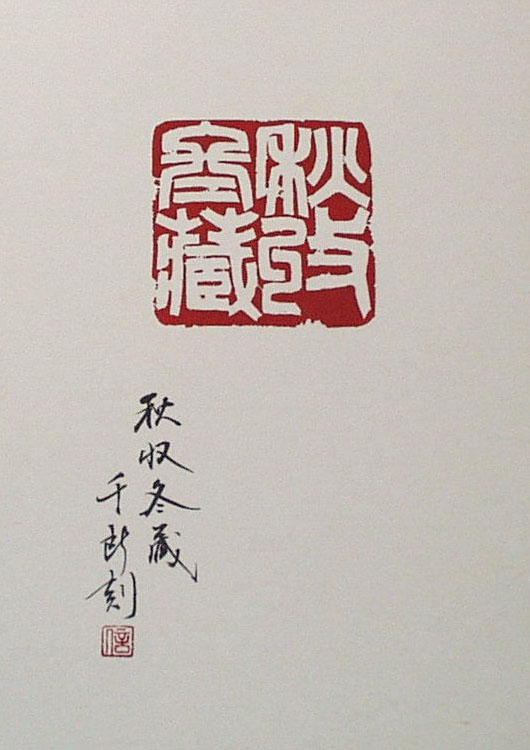 秋收
冬藏
秋收冬藏
千刻
信